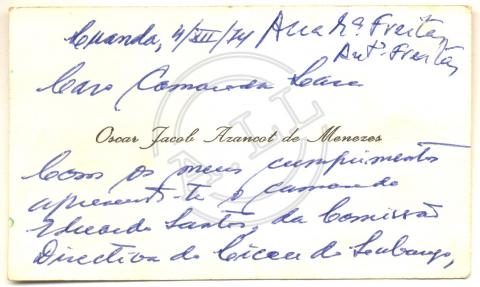 Luanda, 4/XII/74 Ana Mª Freitas
Antº Freitas
Caro Camarada Lara
Oscar Jacob Azancot de Menezes
Com os meus cumprimentos
apresento-te o camarada
Eduardo Santos, da Comissão
Directiva do Liceu do Lubango,
A.LL